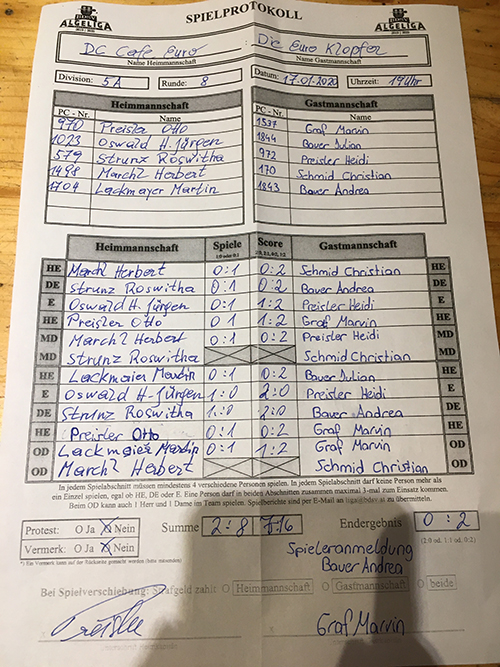 ALGELIGA SPIELPROTOKOLL ALGELIGA
DC Cafe Euro : Die Euro Klopfer
Name Heimmannschaft Name Gastmannschaft
Division: 5A Runde: 8 Datum: 17.01.2020 Uhrzeit: 19 Uhr
Heimmannschaft Gastmannschaft
PC - Nr. Name PC - Nr. Name
970 Preisler Otto 1537 Graf Marvin
1023 Oswald H. Jürgen 1844 Bauer Julian
579 Strunz Roswitha 972 Preisler Heidi
1498 Marchl Herbert 170 Schmid Christian
1704 Lackmayer Martin 1843 Bauer Andrea
Heimmannschaft Spiele Score Gastmannschaft
1:0 oder 0:1
HE Marchl Herbert 0:1 0:2 Schmid Christian HE
DE Strunz Roswitha 0:1 0:2 Bauer Andrea DE
E Oswald H. Jürgen 0:1 1:2 Preisler Heidi E
HE Preisler Otto 0 1 1:2 Graf Marvin HE
MD Marchl Herbert 0 1 0:2 Preisler Heidi MD
MD Strunz Roswitha Schmid Christian MD
HE Lackmaier Martin 0:1 0:2 Bauer Julian HE
E Oswald H. Jürgen 1:0 2:0 Preisler Heidi E
DE Strunz Roswitha 1:0 2:0 Bauer Andrea DE
HE Preisler Otto 0:1 0:2 Graf Marvin HE
OD Lackmaier Martin 0:1 1:2 Graf Marvin OD
OD Marchl Herbert Schmid Christian OD
In jedem Spielabschnitt müssen mindestens 4 verschiedene Personen spielen. In jedem Spielabschnitt darf keine Person mehr als
ein Einzel spielen, egal ob HE, DE oder E. Eine Person darf in beiden Abschnitten zusammen maximal 3-mal zum Einsatz kommen.
Beim OD kann auch 1 Herr und 1 Dame im Team spielen. Spielberichte sind per E-Mail an liga@bdv.at zu übermitteln.
Protest: O Ja O Nein Summe 2:8 7:16 Endergebnis 0:2
Vermerk: O Ja O Nein (2:0 od. 1:1 od. 0:2)
*) Ein Vermerk kann auf der Rückseite gemacht werden (bitte
Spieleranmeldung
Bauer Andrea
Bei Spielverschiebung: Strafgeld zahlt O Heimmannschaft O Gastmannschaft O beide
Preisler Graf Marvin